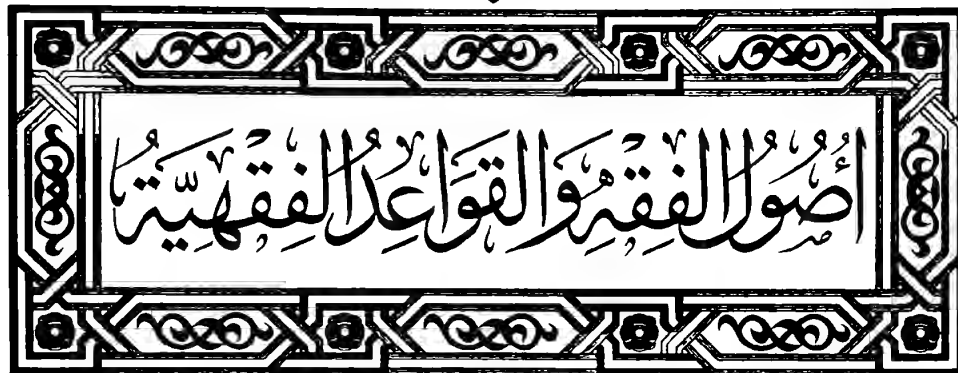 أُصُولُ الفِقْهِ وَالقَوَاعِدُ الفِقْهِيَّةُ